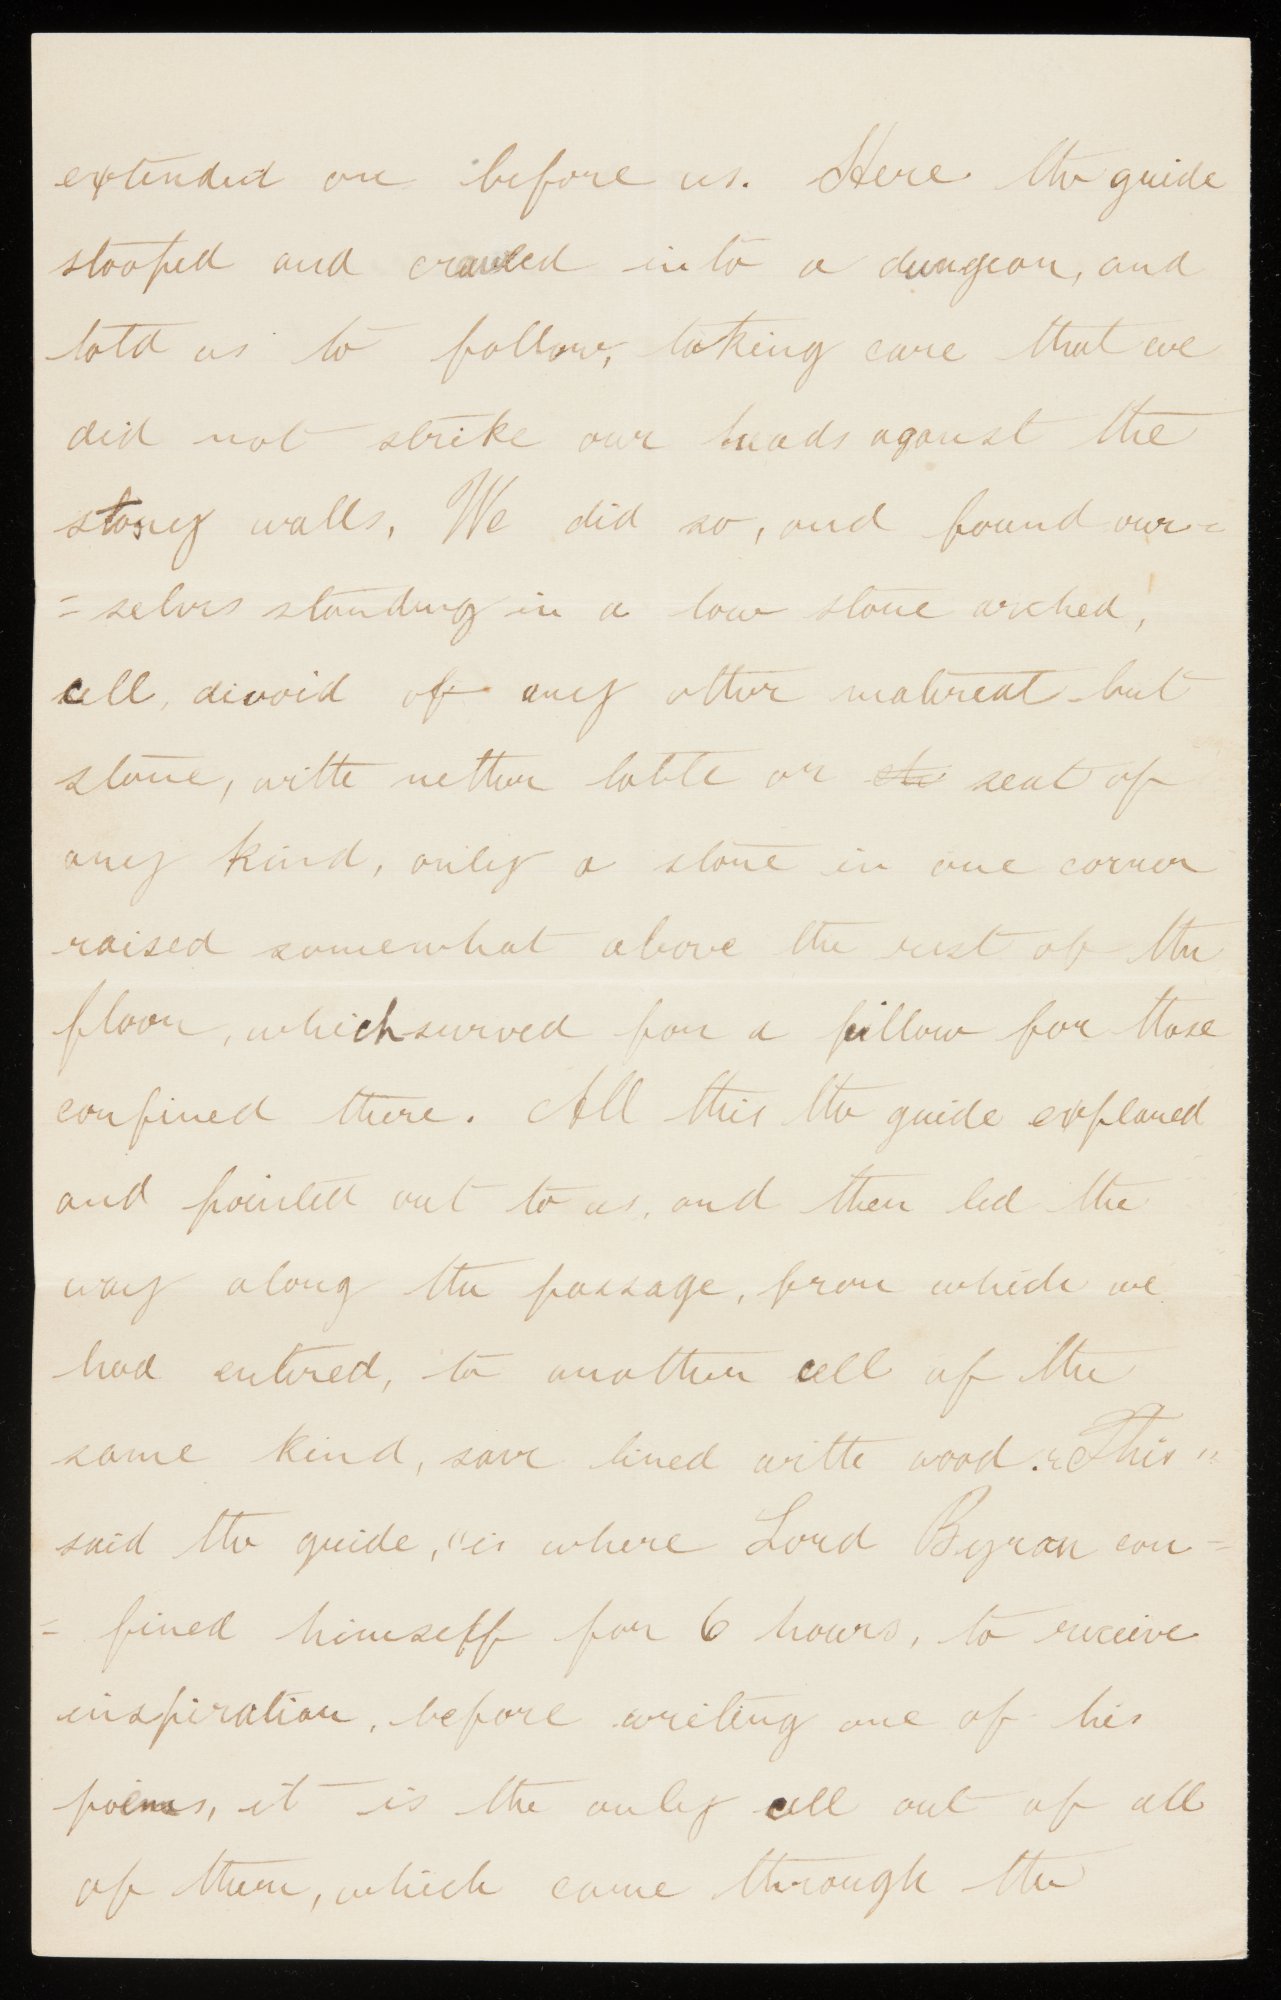 extended on before us. Here the guide
stooped and crawled into a dungeon, and
told us to follow, taking care that we
did not strike our heads aganst the
stoney walls. We did so, and found our=
=selves standing in a low stone arched,
cell, divoid of any other matireal but
stone, with nether table or ste seat of
any kind, only a stone in one corner
raised somewhat above the rest of the
floor, which surved for a pillow for those
confined there. All this the guide explaned
and pointed out to us, and then led the
way along the passage, from which we
had entered, to another cell of the
same kind, save lined with wood. "This"
said the guide, "is where Lord Byran con=
=fined himself for 6 hours, to receive
inspiration, before writing one of his
poems, it is the only cell out of all
of them, which came through the